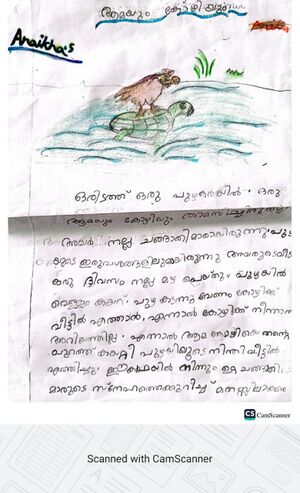 ആമയും കോഴിയും
Anaikha's
ഒരിടത്ത് ഒരു പുഴക്കരയിൽ ഒരു
ആമയും കോഴിയും താമസിച്ചിരുന്നു
അവർ നല്ല ചങ്ങാതിമാരായിരുന്നു. പുഴ
യുടെ ഇരുവശങ്ങളിലുമായിരുന്നു അവരുടെ വീട്
ഒരു ദിവസം നല്ല മഴ പെയ്തു. പുഴയിൽ
വെള്ളം കയറി. പുഴ കടന്നു വേണം കോഴിക്ക്
വീട്ടിൽ എത്താൻ, എന്നാൽ കോഴിക്ക് നീന്താൻ
അറിയത്തില്ല. എന്നാൽ ആമ കോഴിയെ തന്റെ
പുറത്ത് കയറ്റി പുഴയിലൂടെ നീന്തി വീട്ടിൽ
എത്തിച്ചു. ഈ കഥയിൽ നിന്നും ഈ ചങ്ങാതി
മാരുടെ സ്നേഹത്തെക്കുറിച്ച് മനസ്സിലാക്കാം
CS CamScanner
Scanned with CamScanner